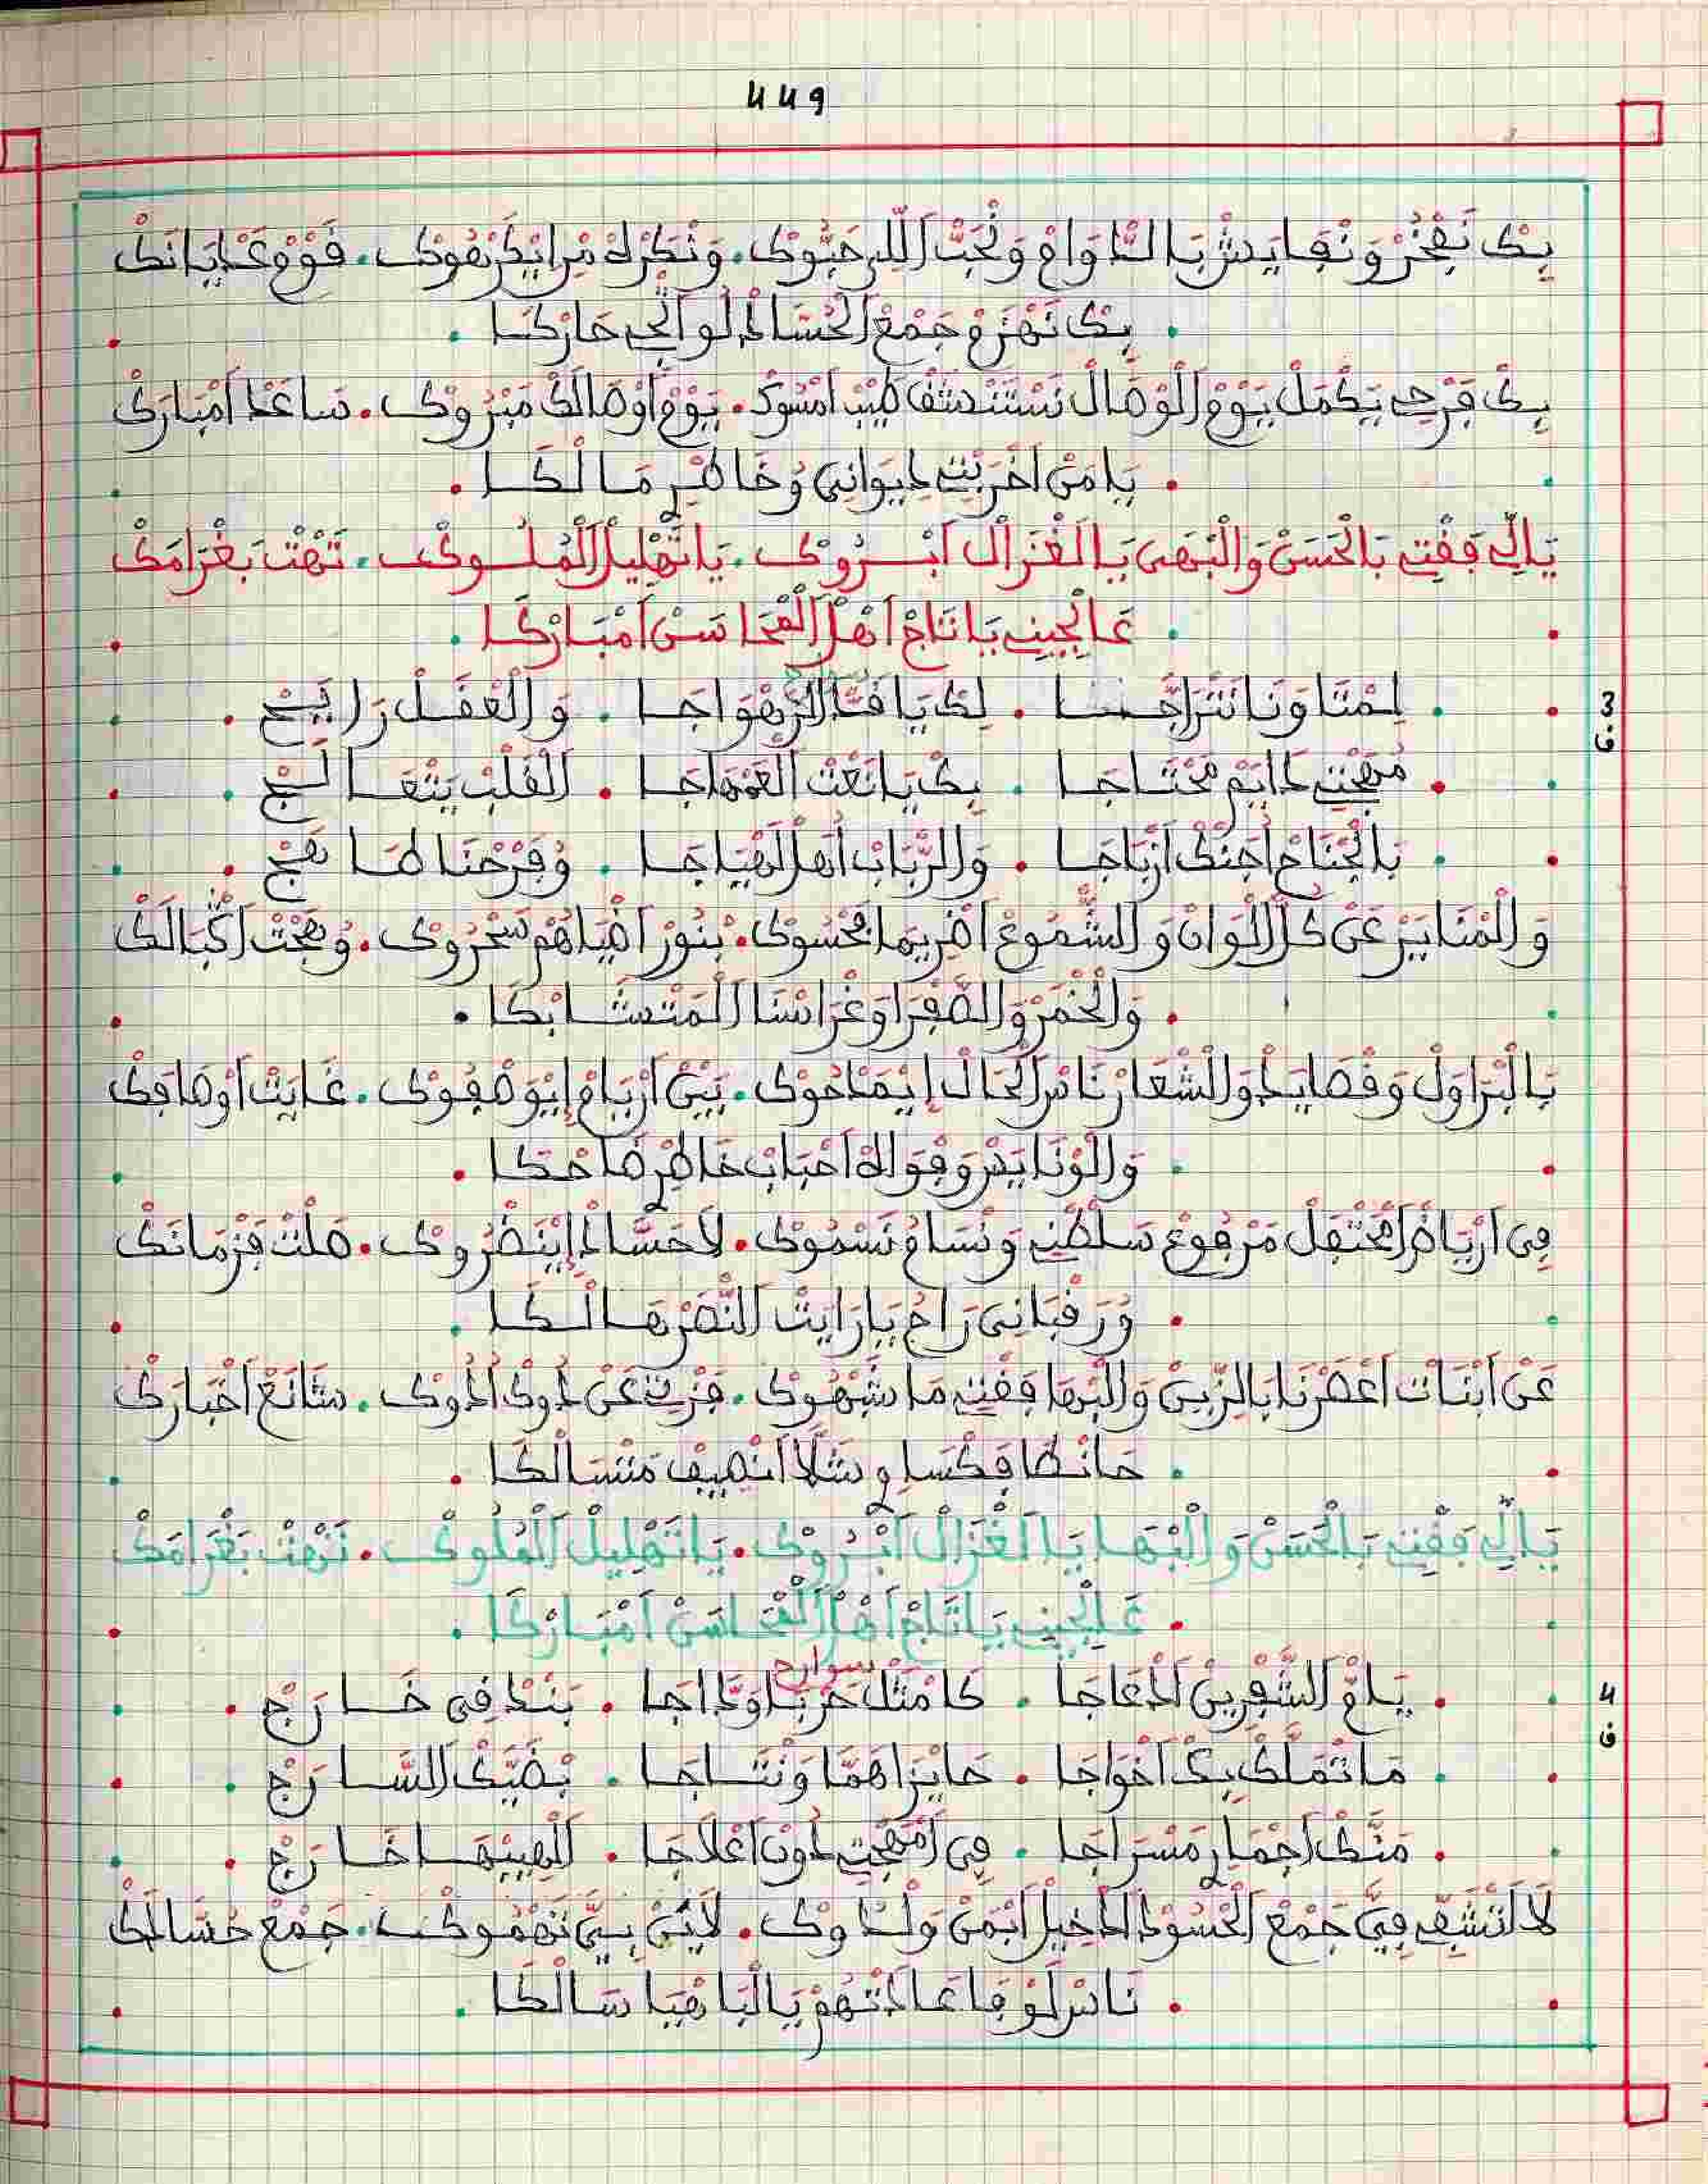 449
بِكْ نَفْخَرْ وَنْفَايَشْ بَالدّْوَامْ وَنْحَبّْ اَللِّي حَبُّوكْ. وَنْكَرْهْ مْنْ اِيكَرْهُوكْ. قَوْمْ عَدْيَانَكْ
. بِكْ نَهْزَمْ جَمْعْ اَلْحُسَّادْ لَوْ اَتْجِي حَارْكَا .
بِكْ فَرْحِي يَكْمَلْ يَوْمْ اَلْوْصَالْ نَسْتَنْشَقْ طِيبْ اَمْسُوكْ. يَوْمْ اَوْصَالَكْ مَبْرُوكْ. سَاعَدْ اَمْبَارَكْ
. يَا مَنْ اَخْرَبْتِي دِيوَانِي وُخَاطْرِي مَالْكَا .
يَالِّي فَقْتِ بَالْحَسَنْ وَالْبْهَى يَا الْغْزَالْ اَبْـرُوكْ. يَا تَهْلِيلْ اَلْمُلُـوكْ. تَهْتْ بَغْرَامَكْ
. عَالْجِينِي يَا تَاجْ اَهْلْ اَلْمْحَاسَنْ اَمْبَارْكَا .
3
. لِمْتَا وَنَا نَتْرَاجَّـا . لِكْ يَا قَدّْ اَلرَّهْوَاجَا . وَالْعْقَـلْ رَايَـجْ .
ف
. مُهْجْتِي دَايَمْ مَحْتَـاجَا . بِكْ يَا نَعْتْ اَلْغَنْهَاجَا . اَلْقَلْبْ يَتْعَـالَـجْ
. بَالْجْنَاحْ اَجْنْكْ اَرْبَاجَا . وَالرّْبَابْ اَهْلْ لَهْيَاجَا . وُفَرْحْنَا طَـا بَجْ .
وَالْمْنَايَرْ عَنْ كُلّْ اَلْوَانْ وَالشّْمُوعْ اَضْرِيمَا مَحْسُوكْ. بْنُورْ اَضْيَاهُمْ سَحْرُوكْ. وُبَهْجْتْ اَكْبَالَكْ
. وَالْخْمَرْ وَالصَّفْرَا وَغْرَاسْنَا اَلْمَتْشَـابْكَا .
بَالْبْرَاوَلْ وَقْصَايَدْ وَالشّْعَارْ نَاسْ اَلْحَالْ اِيْمَدْحُوكْ. بَيْنْ اَرْيَامْ اِيْوَصْفُوكْ. غَايَتْ اَوْصَافَكْ
. وَالْوْنَايَسْ وَقْوَالْ اَحْبَابْ خَاطْرِي ضَاحْكَا .
فِي اَرْيَاضْ اَمْحَنْتَفَلْ مَرْفُوعْ سَلْطْنِي وَنْسَامْ نَسْمُوكْ. لَا حَسَّادْ اِينَضْرُوكْ. صَلْتْ فَزْمَانَكْ
. وُرَقْبَانِي رَاحُ يَا رَايَتْ اَلنّْصَرْ هَـالْكَا .
عَنْ اَبْنَاتْ اَعْصَرْنَا بَالزِّينْ وَالْبْهَا فَقْتِ مَا شَبْهُوكْ. فَزْتِ عَنْ دُوكْ اَدُوكْ. شَانَعْ اَخْبَارَكْ
. حَانْطَا فَكْسَاوِي شَلَّا اَنْصِيفْ مَنْسَالْكَا .
يَالِّي فَقْتِ بَالْحَسَنْ وَالْبْهَـا يَا الْغْزَالْ اَبْرُوكْ. يَا تَهْلِيلْ اَلْمُلُوكْ. تَهْتْ بَغْرَامَكْ
. عَالْجِينِي يَا تَاجْ اَهْلْ اَلْمْحَاسَنْ اَمْبَـارْكَا .
سوارح
4
. يَامّْ اَلشّْفْرِينْ اَدْعَاجَا . كَا مْثَلْ حَرْبَا وَدَّاجَا . بَنْدْ فِي خَـارَجْ .
ف
. مَاتْمَلَّكْ بِكْ اَخْوَاجَا . حَايْزَا هَمَّا وَنْتَـاجَا . بْضَيَّكْ اَلسَّـارَجْ .
. مَنَّكْ اَجْمَارِي مَسْرَاجَا . فِي اَمْهَجْتِي دُونْ اَعْلَاجَا . اَلْهِيبْهَـا خَـارَجْ .
لَا اَتْشَفِّي فِيَّ جَمْعْ اَلْحْسُودْ اَلدّْخِيلْ اَبْمَنْ وَلْـدُوكْ. لَايَنْ بِيَّ تَهْمُوكْ. جَمْعْ حُسَّادَكْ
. نَاسْ لَوْمَا عَادَتْهُمْ يَا اَلْبَاهْيَا سَالْكَا .